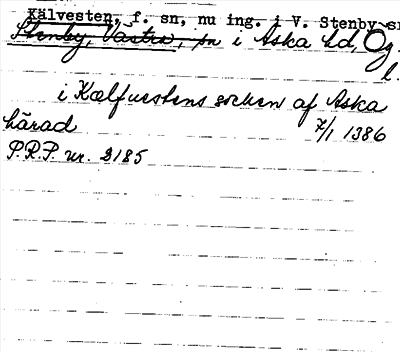 Kälvesten, f. sn, nu ing. i V. Stenby sn
Stenby, Västra, sn i Aska hd, Ög.
l.
i Kælfuestens sochen af Aska
härad 7/1 1386
P.R.P. nr. 2185